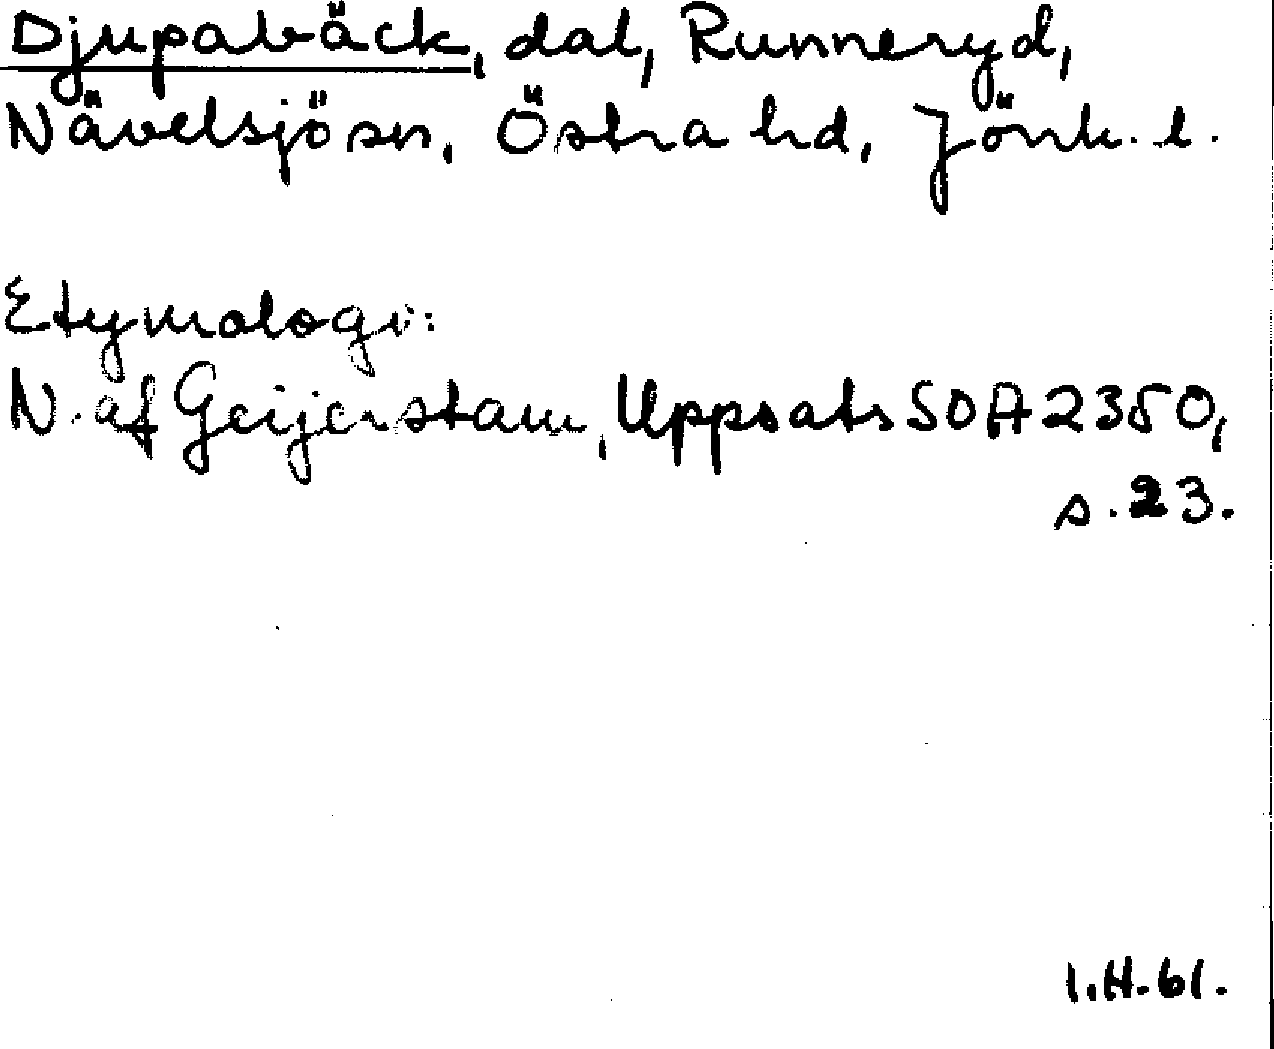 Djupabäck, dal, Runneryd,
Nävelsjö sn, Östra hd, Jönk. l.
Etymologi:
N. af Geijerstam, Uppsats SOA 2350,
s. 23.
I.H. 61.